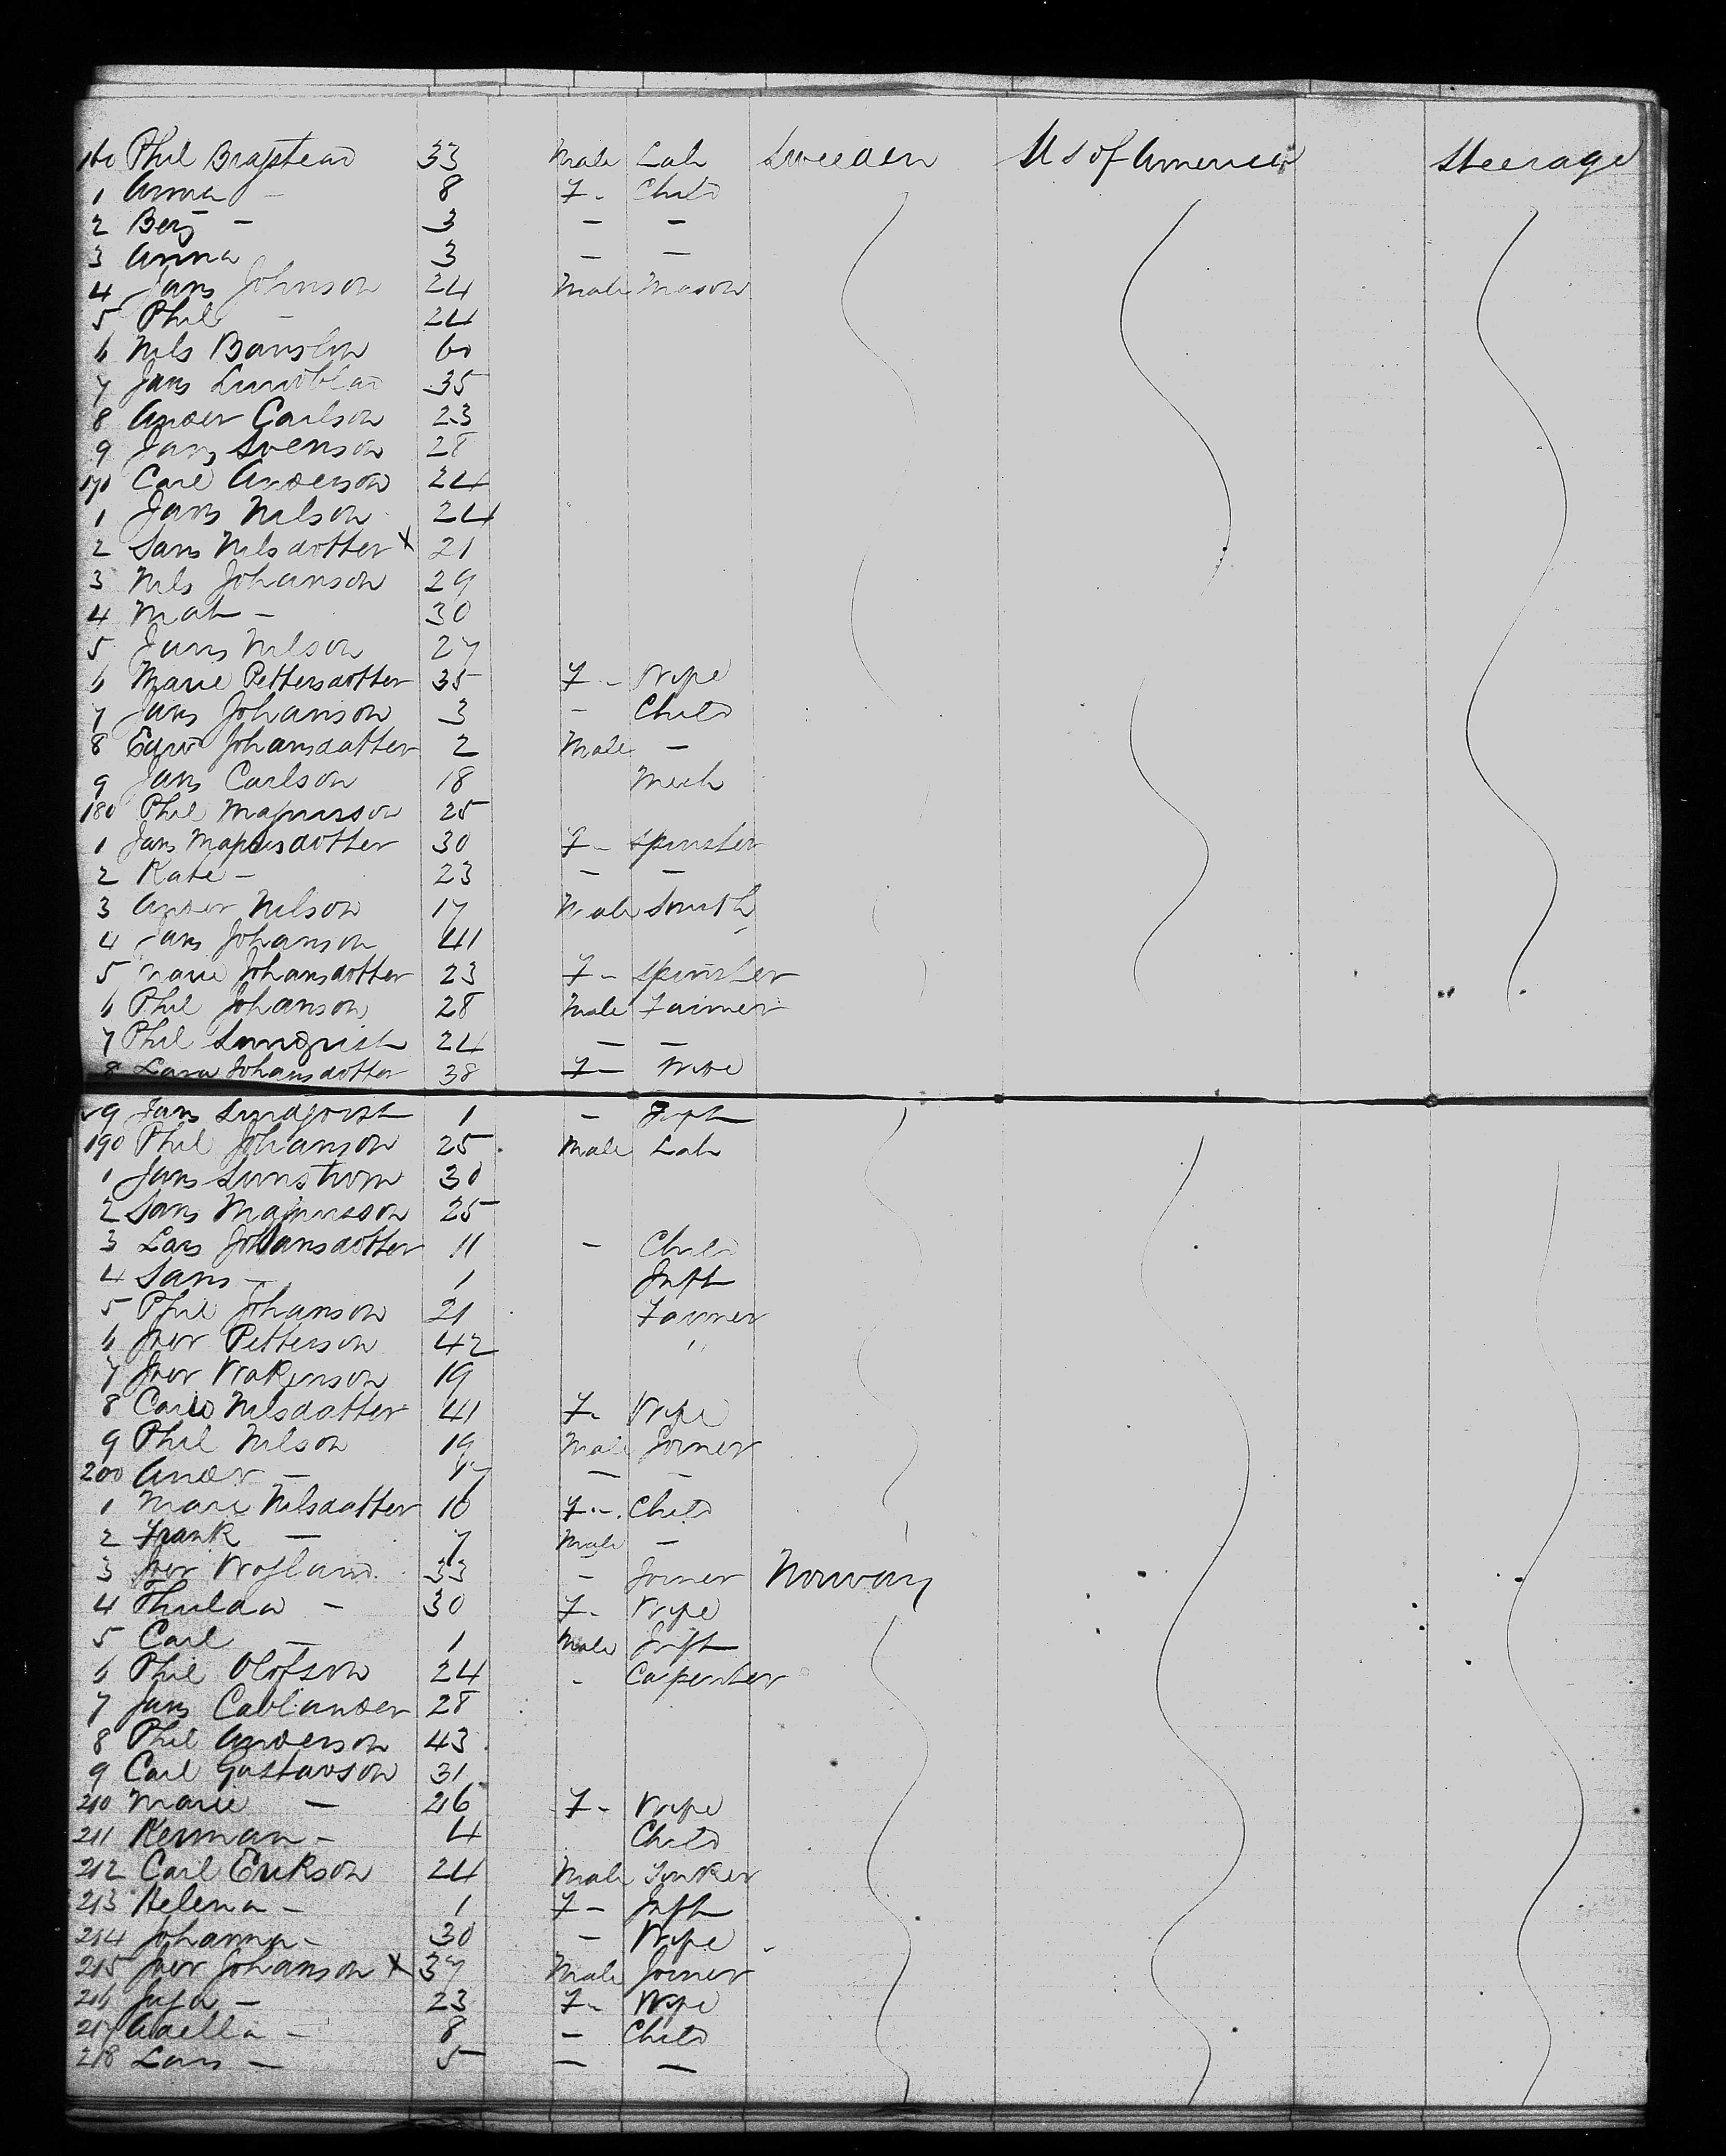 160 Phil Brapstead 33 Male Lab Sweeden Us of America Steerage
1 Anna - 8 F - Child
2 Berg - 3 - -
3 Anna 3 - -
4 Jans Johnson 24 Male Mason
5 Phil - 24
6 Nils Banslon 60
7 Jans Lundblad 35
8 Ander Carlson 23
9 Jans Svenson 28
170 Carl Anderson 24
1 Jans Nilson 24
2 Sans Nilsdotter x 21
3 Nils Johanson 29
4 Mat - 30
5 Jans Nilson 27
6 Marie Pettersdotter 35 F - Wife
7 Jans Johanson 3 - Child
8 Johansdatter 2 Male -
9 Jans Carlson 18 Mech
180 Phil Majnusson 25
1 Jans Majnusdotter 30 F - Spinster
2 Kate - 23 - -
3 Ander Nilson 17 Male Smith
4 Jans Johanson 41
5 Marie Johansdotter 23 F - Spinster
6 Phil Johanson 28 Male Farmer
7 Phil Lundquist 24 - -
8 Lana Johansdotter 38 F - Wife
9 Jans Lundqvist 1 - Inft
190 Phil Johanson 25 Male Lab
1 Jans Lunstrom 30
2 Sans Majnusson 25
3 Lars Johansdotter 11 - Child
4 Sans - 1 Inft
5 Phil Johanson 21 Farmer
6 Iver Petterson 42 "
7 Iver Wakinson 19
8 Carlo Nilsdatter 41 F - Wife
9 Phil Nilson 19 Male Joiner
200 Ander - - -
1 Marie Nilsdatter 10 F - Child
2 Frank - 7 Male -
3 Iver Wogland 33 - Joiner Norway
4 Thulda - 30 F - Wife
5 Carl - 1 Male Inft
6 Phil Olofson 24 - Carpenter
7 Jans Cablander 28
8 Phil Anderson 43
9 Carl Gustavson 31
210 Marie - 26 F - Wife
211 Kerman - 4 Child
212 Carl Erikson 24 Male Tinker
213 Helena - 1 F - Inft
214 Johanna - 30 - Wife
215 Iver Johanson x 37 Male Joiner
216 Juja - 23 F - Wife
217 Adella - 8 - Child
218 Lars - 5 - -